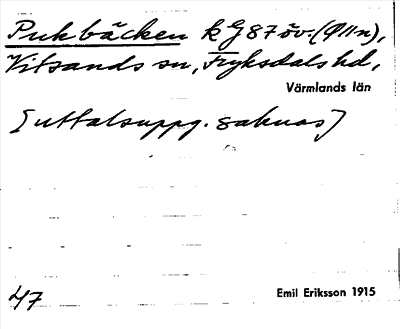 Puhbäcken k G 87 öv. (Ø 11 n),
Vitsands sn, Fryksdals hd,
Värmlands län
[uttalsuppg. saknas]
47
Emil Eriksson 1915